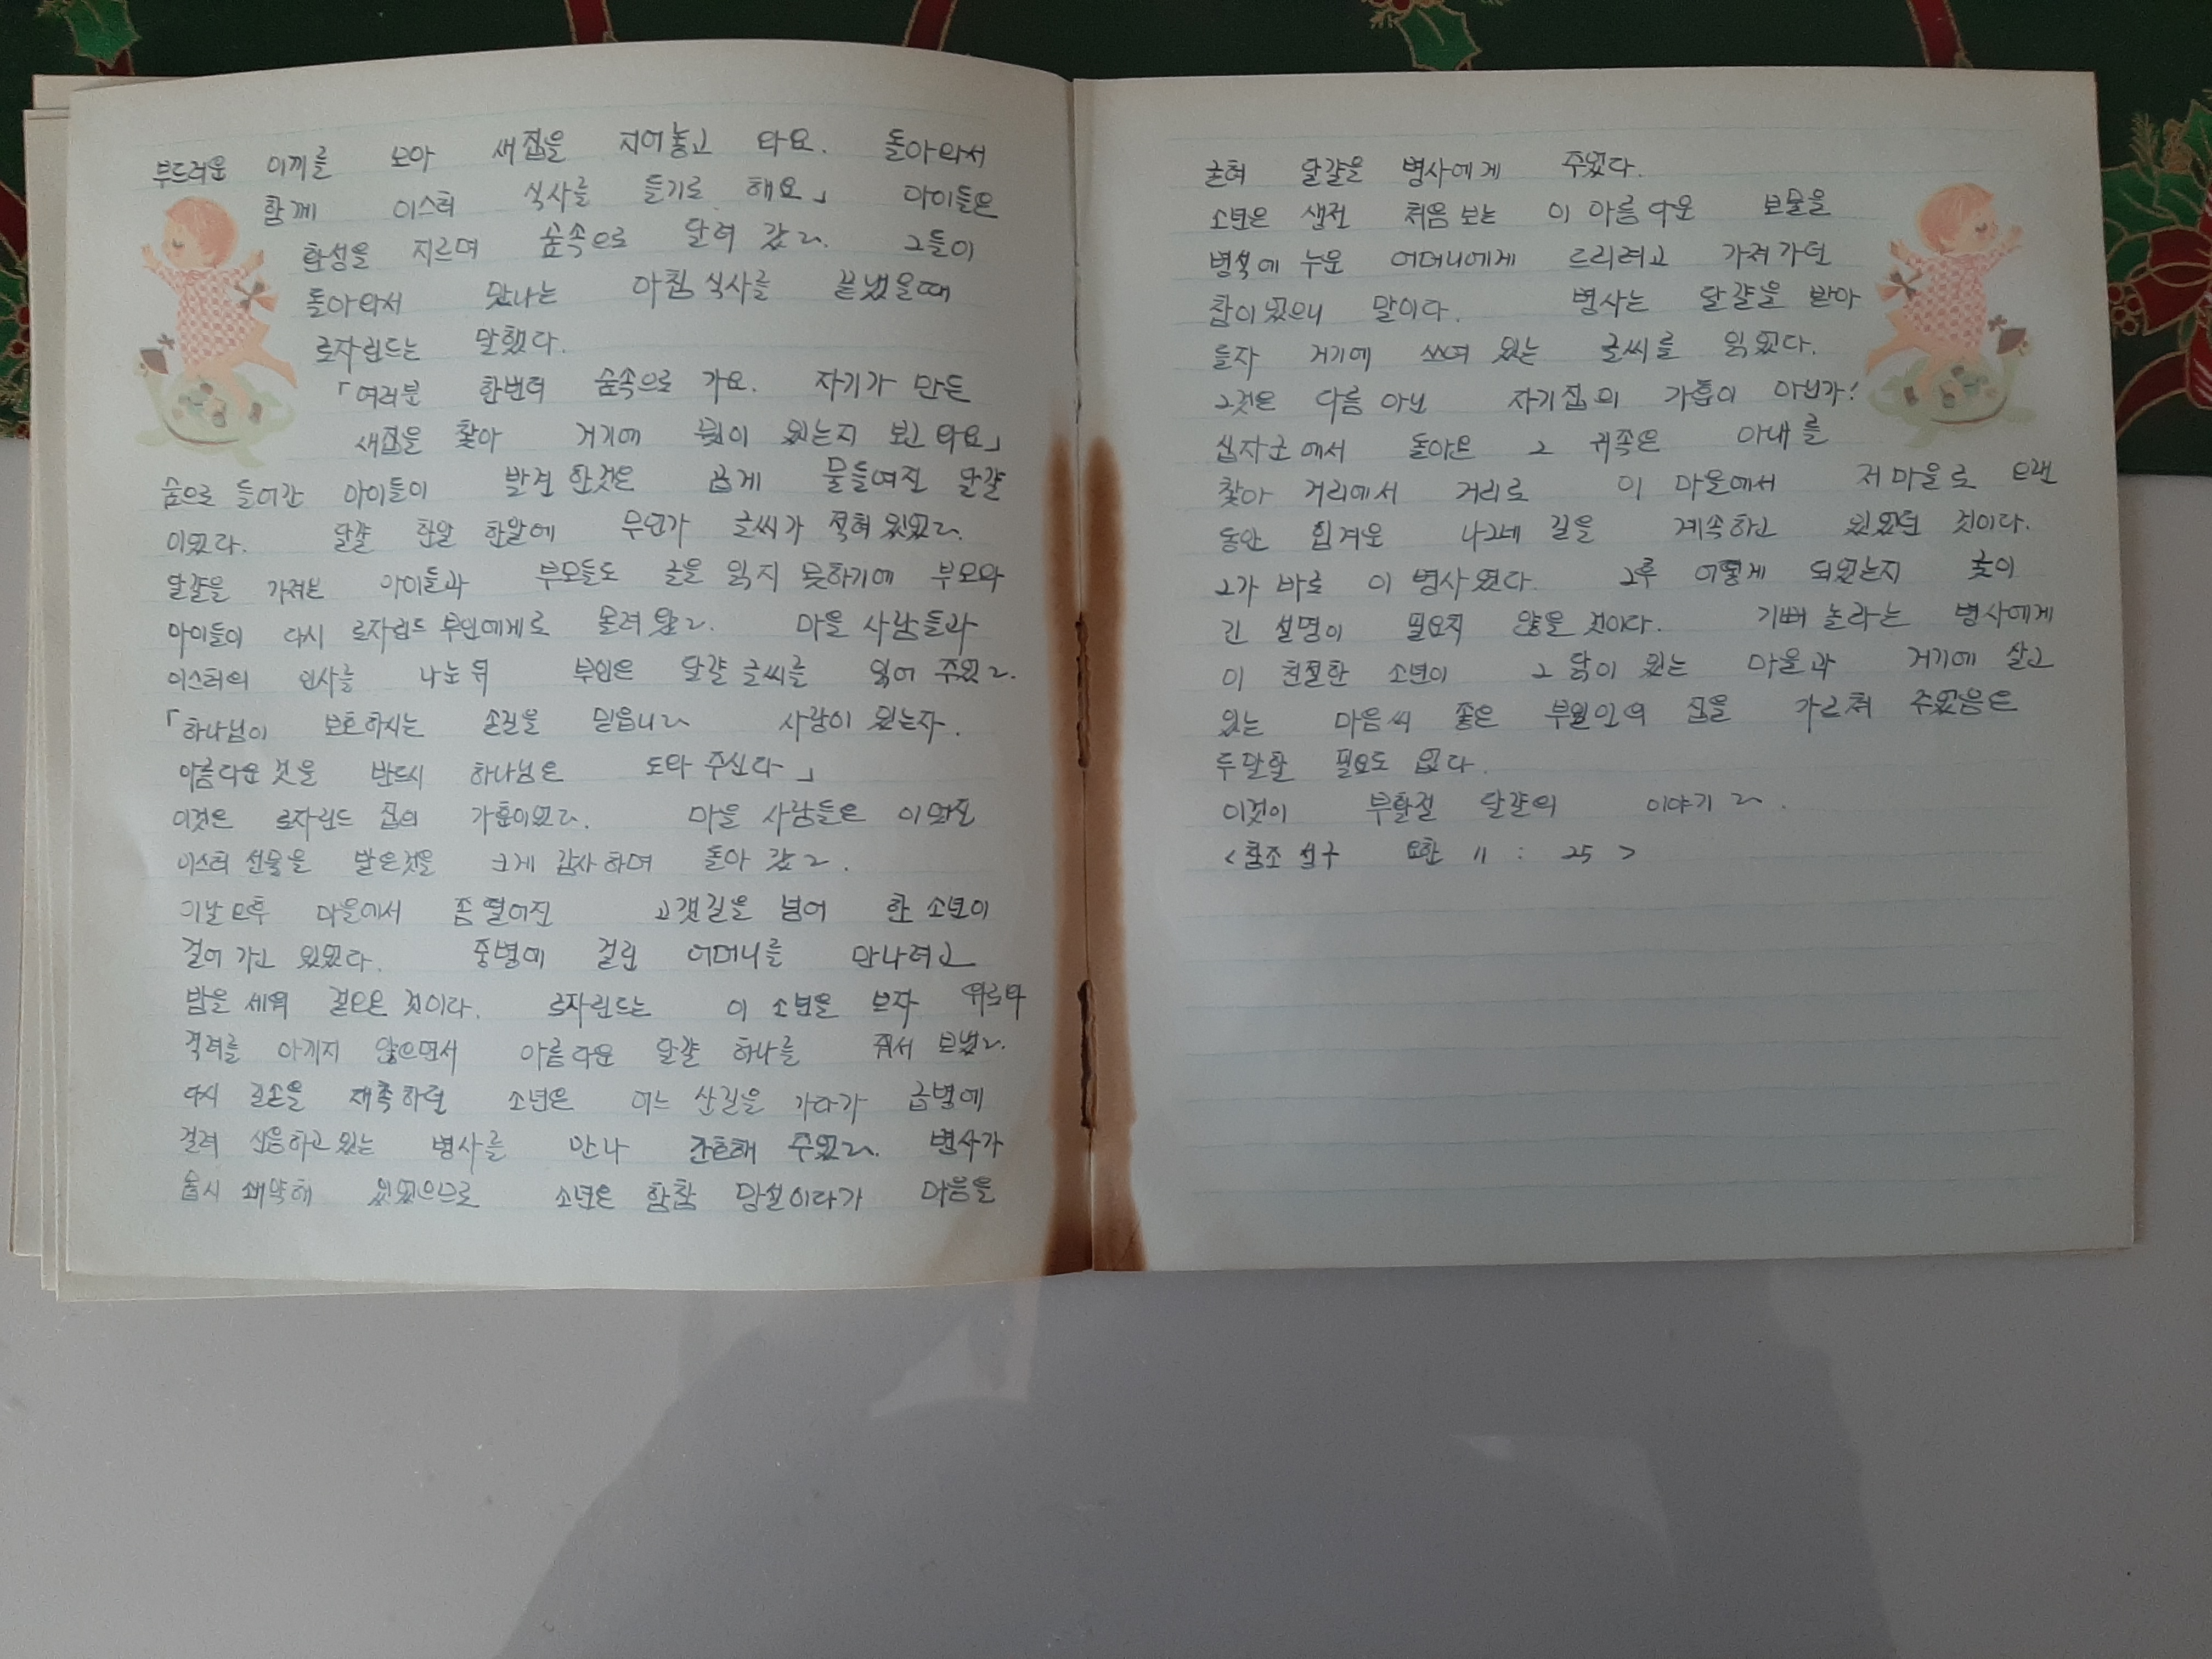 부드러운 이끼를 모아 새집을 지어놓고 와요. 돌아와서
함께 이스터 식사를 들기로 해요」 아이들은
환성을 지르며 숲속으로 달려 갔다. 그들이
돌아와서 맛나는 아침 식사를 끝냈을때
로자린드는 말했다.
「여러분 한번더 숲속으로 가요. 자기가 만든
새집을 찾아 거기에 뭣이 있는지 보고 와요」
숲으로 들어간 아이들이 발견 한것은 곱게 물들여진 달걀
이었다. 달걀 한알 한알에 무언가 글씨가 적혀 있었다.
달걀을 가져온 아이들과 부모들도 글을 읽지 못하기에 부모와
아이들이 다시 로자린드 부인에게로 몰려 왔다. 마을 사람들과
이스터의 인사를 나눈 뒤 부인은 달걀 글씨를 읽어 주었다.
「하나님이 보호하시는 손길을 믿읍니다 사랑이 있는자.
아름다운 것을 반드시 하나님은 도와 주신다」
이것은 로자린드 집의 가훈이었다. 마을 사람들은 이 멋진
이스터 선물을 받은것을 크게 감사하며 돌아 갔다.
이날 오후 마을에서 좀 떨어진 고갯길을 넘어 한 소년이
걸어 가고 있었다. 중병에 걸린 어머니를 만나려고
밤을 세워 걸으온 것이다. 로자린드는 이 소년을 보자 위로와
격려를 아끼지 않으면서 아름다운 달걀 하나를 줘서 보냈다.
다시 길손을 재촉하던 소년은 어느 산길을 가다가 급병에
걸려 신음하고 있는 병사를 만나 간호해 주었다. 병사가
몹시 쇄약해 있었으므로 소년은 함참 망설이다가 마음을
굳혀 달걀을 병사에게 주었다.
소년은 생전 처음 보는 이 아름다운 보물을
병석에 누운 어머니에게 드리려고 가져가던
참이었으니 말이다. 병사는 달걀을 받아
들자 거기에 쓰여 있는 글씨를 읽었다.
그것은 다름 아닌 자기집의 가훈이 아닌가!
십자군에서 돌아온 그 귀족은 아내를
찾아 거리에서 거리로 이 마을에서 저 마을로 오랜
동안 힘겨운 나그네 길을 계속하고 있었던 것이다.
그가 바로 이 병사였다. 그후 어떻게 되었는지 굳이
긴 설명이 필요치 않을 것이다. 기뻐 놀라는 병사에게
이 친절한 소년이 그 닭이 있는 마을과 거기에 살고
있는 마음씨 좋은 부인의 집을 가르쳐 주었음은
두말할 필요도 없다.
이것이 부활절 달걀의 이야기다.
<참조 성구 요한 11 : 25 >